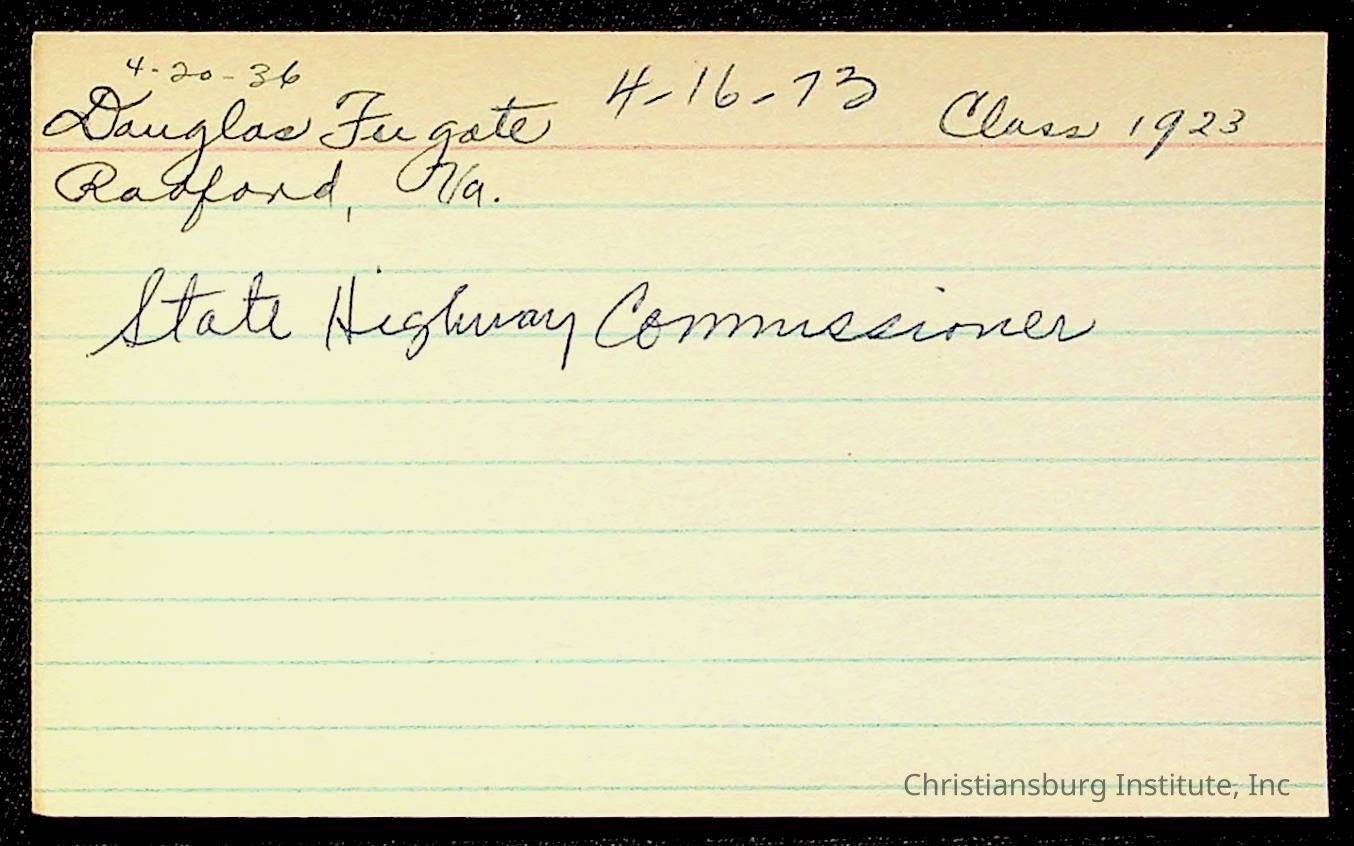 4-20-36
Douglas Fugate 4-16-73 Class 1923
Radford, Va.
State Highway Commissioner
Christiansburg Institute, Inc